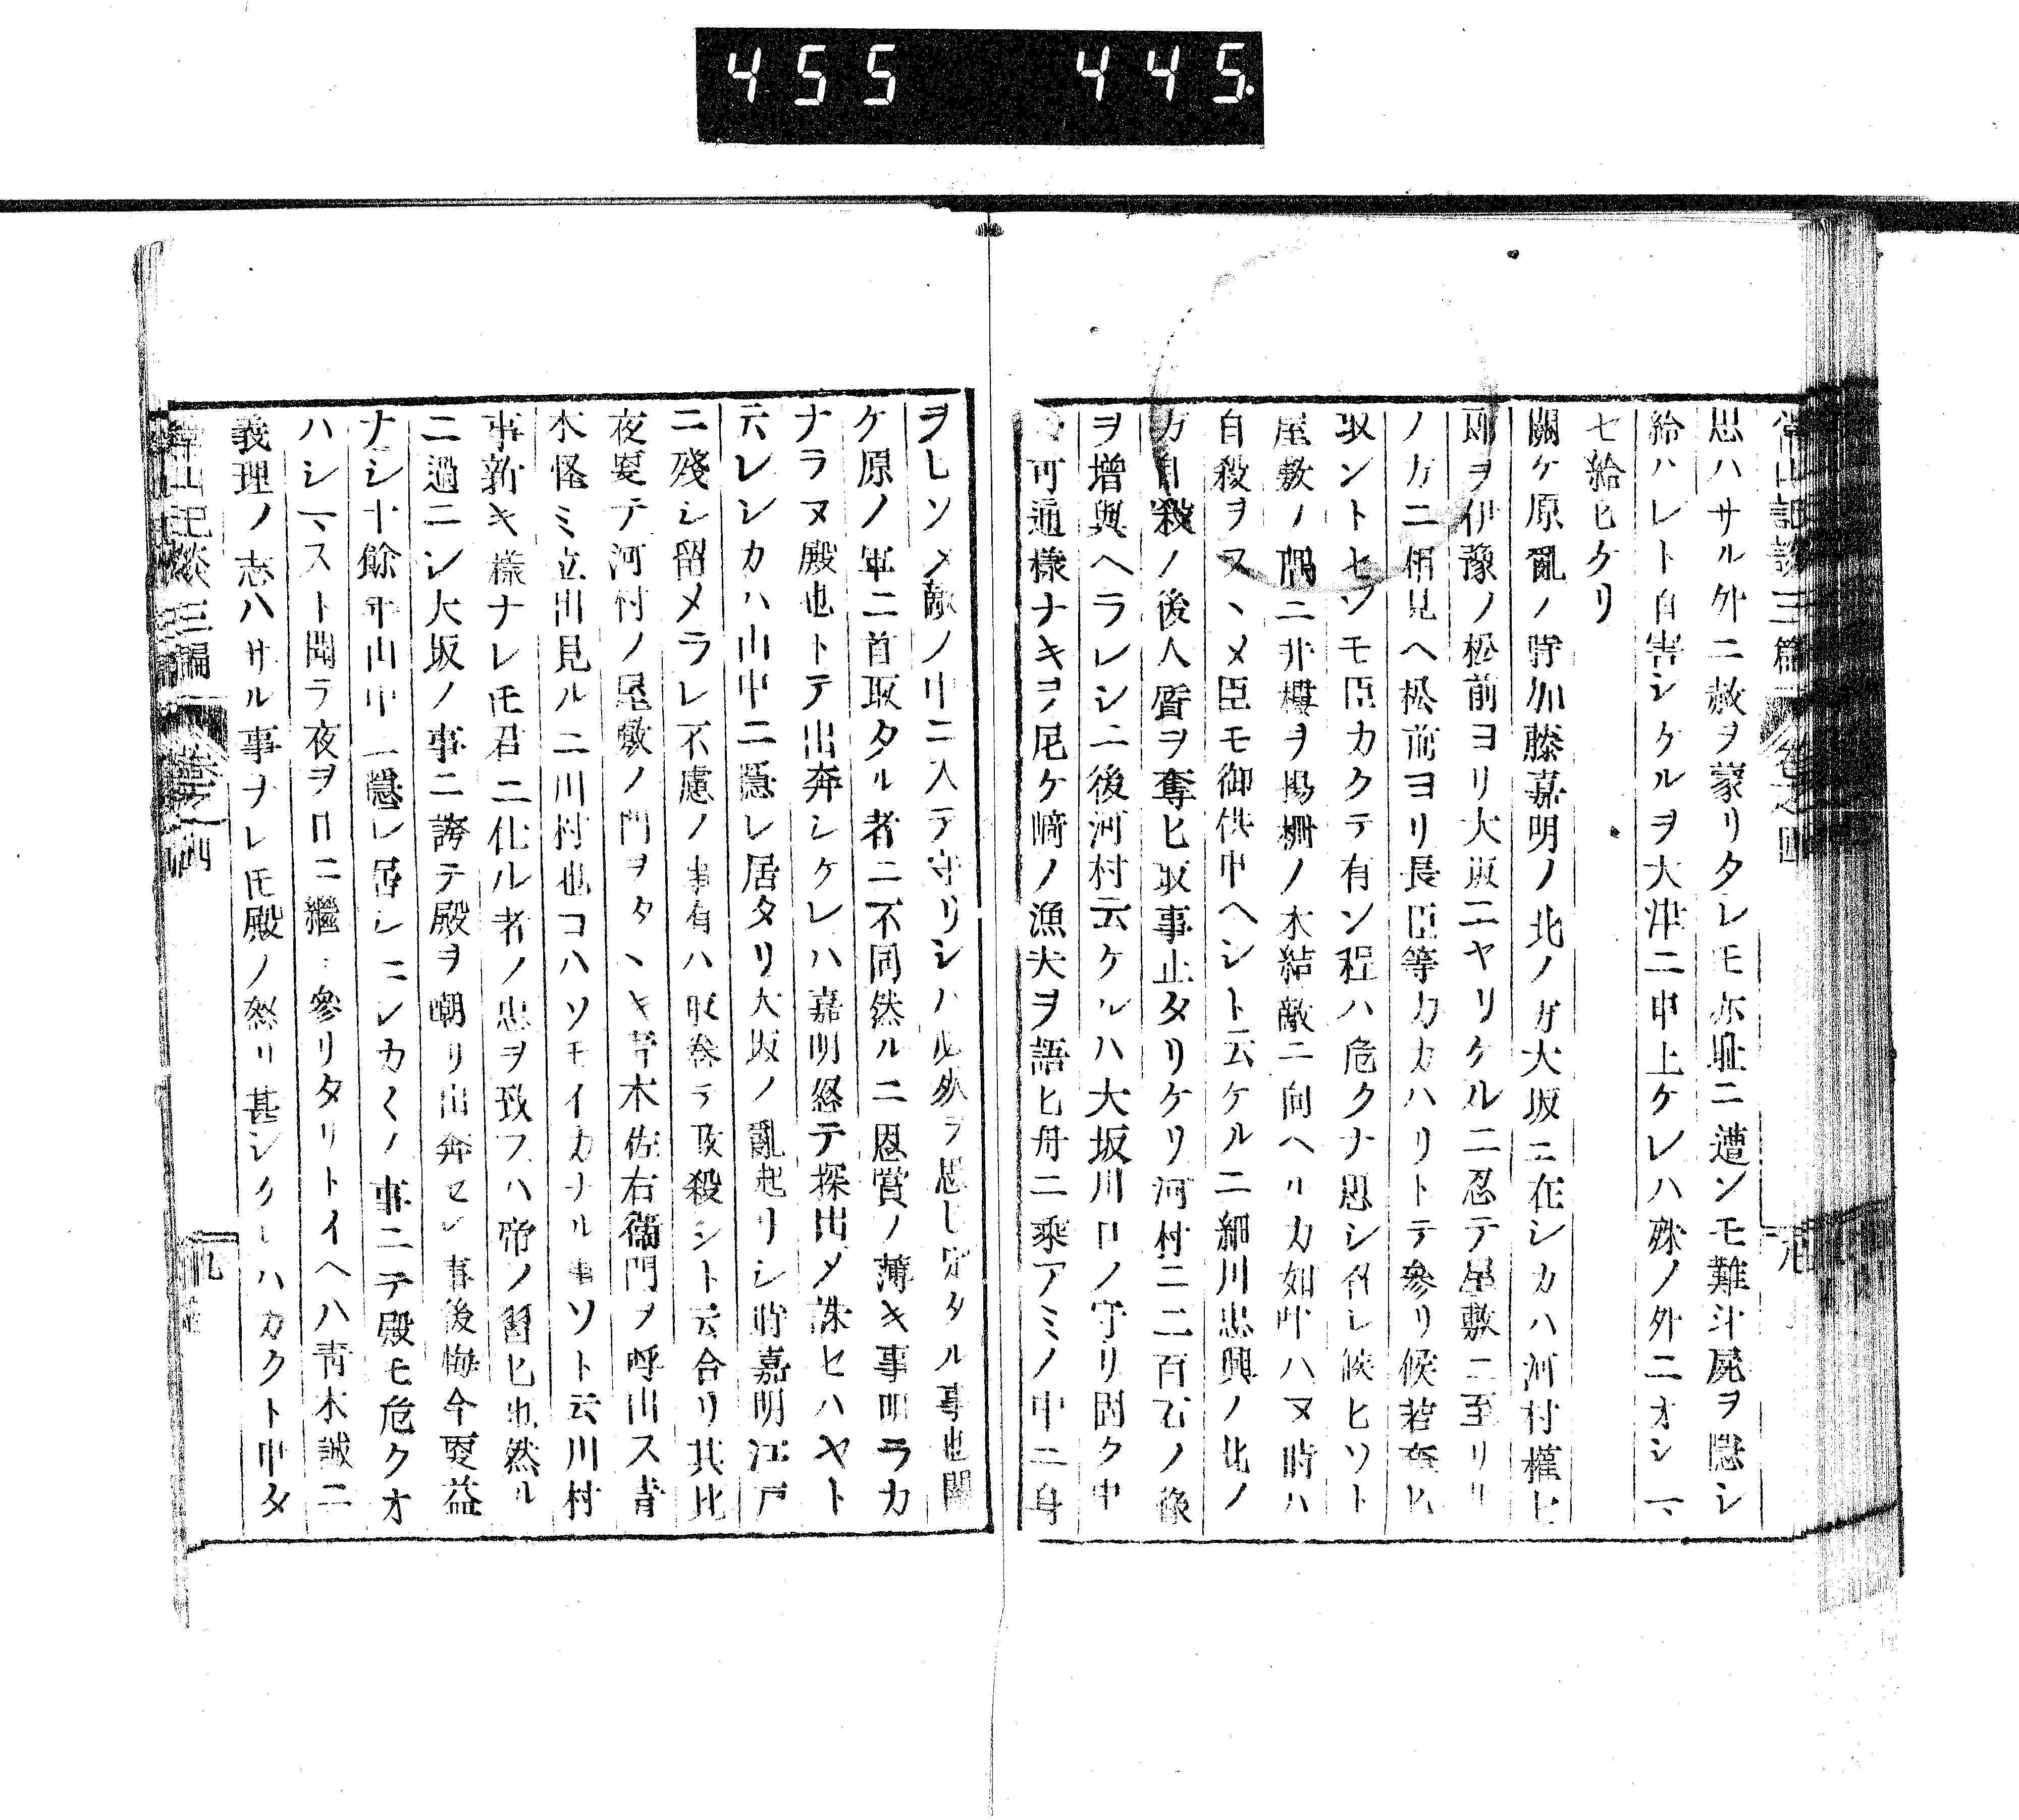 455 445
常山記談三篇 卷之四
思ハサル外ニ救ヲ蒙リタレモ亦耻ニ遭ンモ難斗屍ヲ隱シ
給ハレト自害シケルヲ大津ニ申上ケレハ殊ノ外ニオシマ
セ給ヒケリ
關ケ原亂ノ時加藤嘉明ノ北ノ方大坂ニ在シカハ河村權七
郎ヲ伊豫ノ松前ヨリ大坂ニヤリケルニ忍テ屋敷ニ至リ
ノ方ニ相見ヘ松前ヨリ長臣等カカハリトテ參リ候若奪ヒ
取ントセソモ臣カクテ有ン程ハ危クナ思シ召レ候ヒソト
屋敷ノ隅ニ井樓ヲ揚柵ノ木結敵ニ向ヘリカ如叶ハヌ時ハ
自殺ヲスヽメ臣モ御供申ヘシト云ケルニ細川忠興ノ北ノ
方自殺ノ後人質ヲ奪ヒ取事止タリケリ河村ニ二百石ノ祿
ヲ增與ヘラレシニ後河村云ケルハ大坂川口ノ守リ固ク中
可通樣ナキヲ尼ケ崎ノ漁夫ヲ語ヒ舟ニ乘アミノ中ニ身
ヲシソメ敵ノ中ニ入テ守リシハ必死ヲ思ヒ定タル事也關
ケ原ノ軍ニ首取タル者ニ不同然ルニ恩賞ノ薄キ事明ラカ
ナラヌ殿也トテ出奔シケレハ嘉明怒テ探出メ誅セハヤト
云レシカハ山中ニ隱レ居タリ大坂ノ亂起リシ時嘉明江戸
ニ殘シ留メラレ不慮ノ事有ハ取卷テ攻殺シト云合リ其比
夜更テ河村ノ屋敷ノ門ヲタヽキ靑木佐右衞門ヲ呼出ス靑
木怪ミ立出見ルニ川村也コハソモイカナル事ソト云川村
事新キ樣ナレモ君ニ仕ル者ノ忠ヲ致フハ常ノ習ヒ也然ル
ニ過ニシ大坂ノ事ニ誇テ殿ヲ嘲リ出奔セシ事後悔今更益
ナシ十餘年山中ニ隱レ居シニシカ〱ノ事ニテ殿モ危クオ
ハシマスト聞ラ夜ヲ日ニ繼 參リタリトイヘハ靑木誠ニ
義理ノ志ハサル事ヲレモ殿ノ怒リ甚シクレハカクト申タ
常山記談三編 卷之四 九